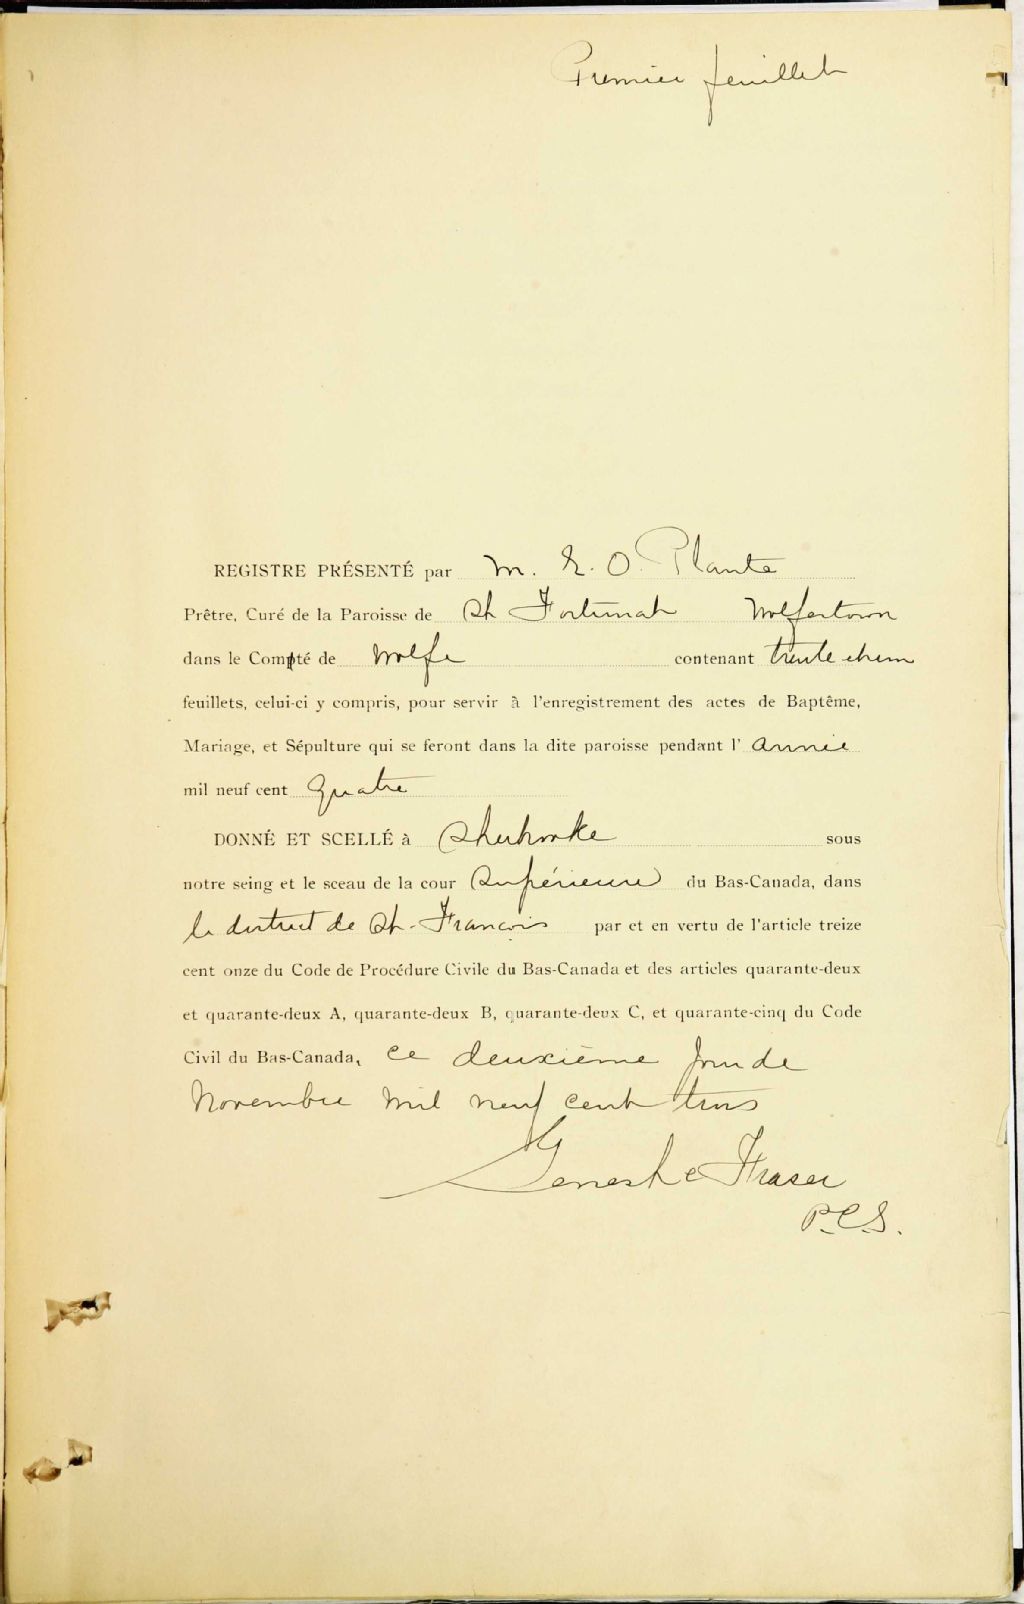 Premier feuillet
REGISTRE PRÉSENTÉ par M. E. O. Plante
Prêtre, Curé de la Paroisse de St Fortunat Wolfestown
dans le Compté de Wolfe contenant trente et un
feuillets, celui-ci y compris, pour servir à l'enregistrement des actes de Baptême,
Mariage, et Sépulture qui se feront dans la dite paroisse pendant l' année
mil neuf cent quatre
DONNÉ ET SCELLÉ à Sherbrooke sous
notre seing et le sceau de la cour Supérieure du Bas-Canada, dans
le district de St. Francois par et en vertu de l'article treize
cent onze du Code de Procédure Civile du Bas-Canada et des articles quarante-deux
et quarante-deux A, quarante-deux B, quarante-deux C, et quarante-cinq du Code
Civil du Bas-Canada, ce deuxième jour de
Novembre mil neuf cent trois
Genest & Fraser
P.C.S.